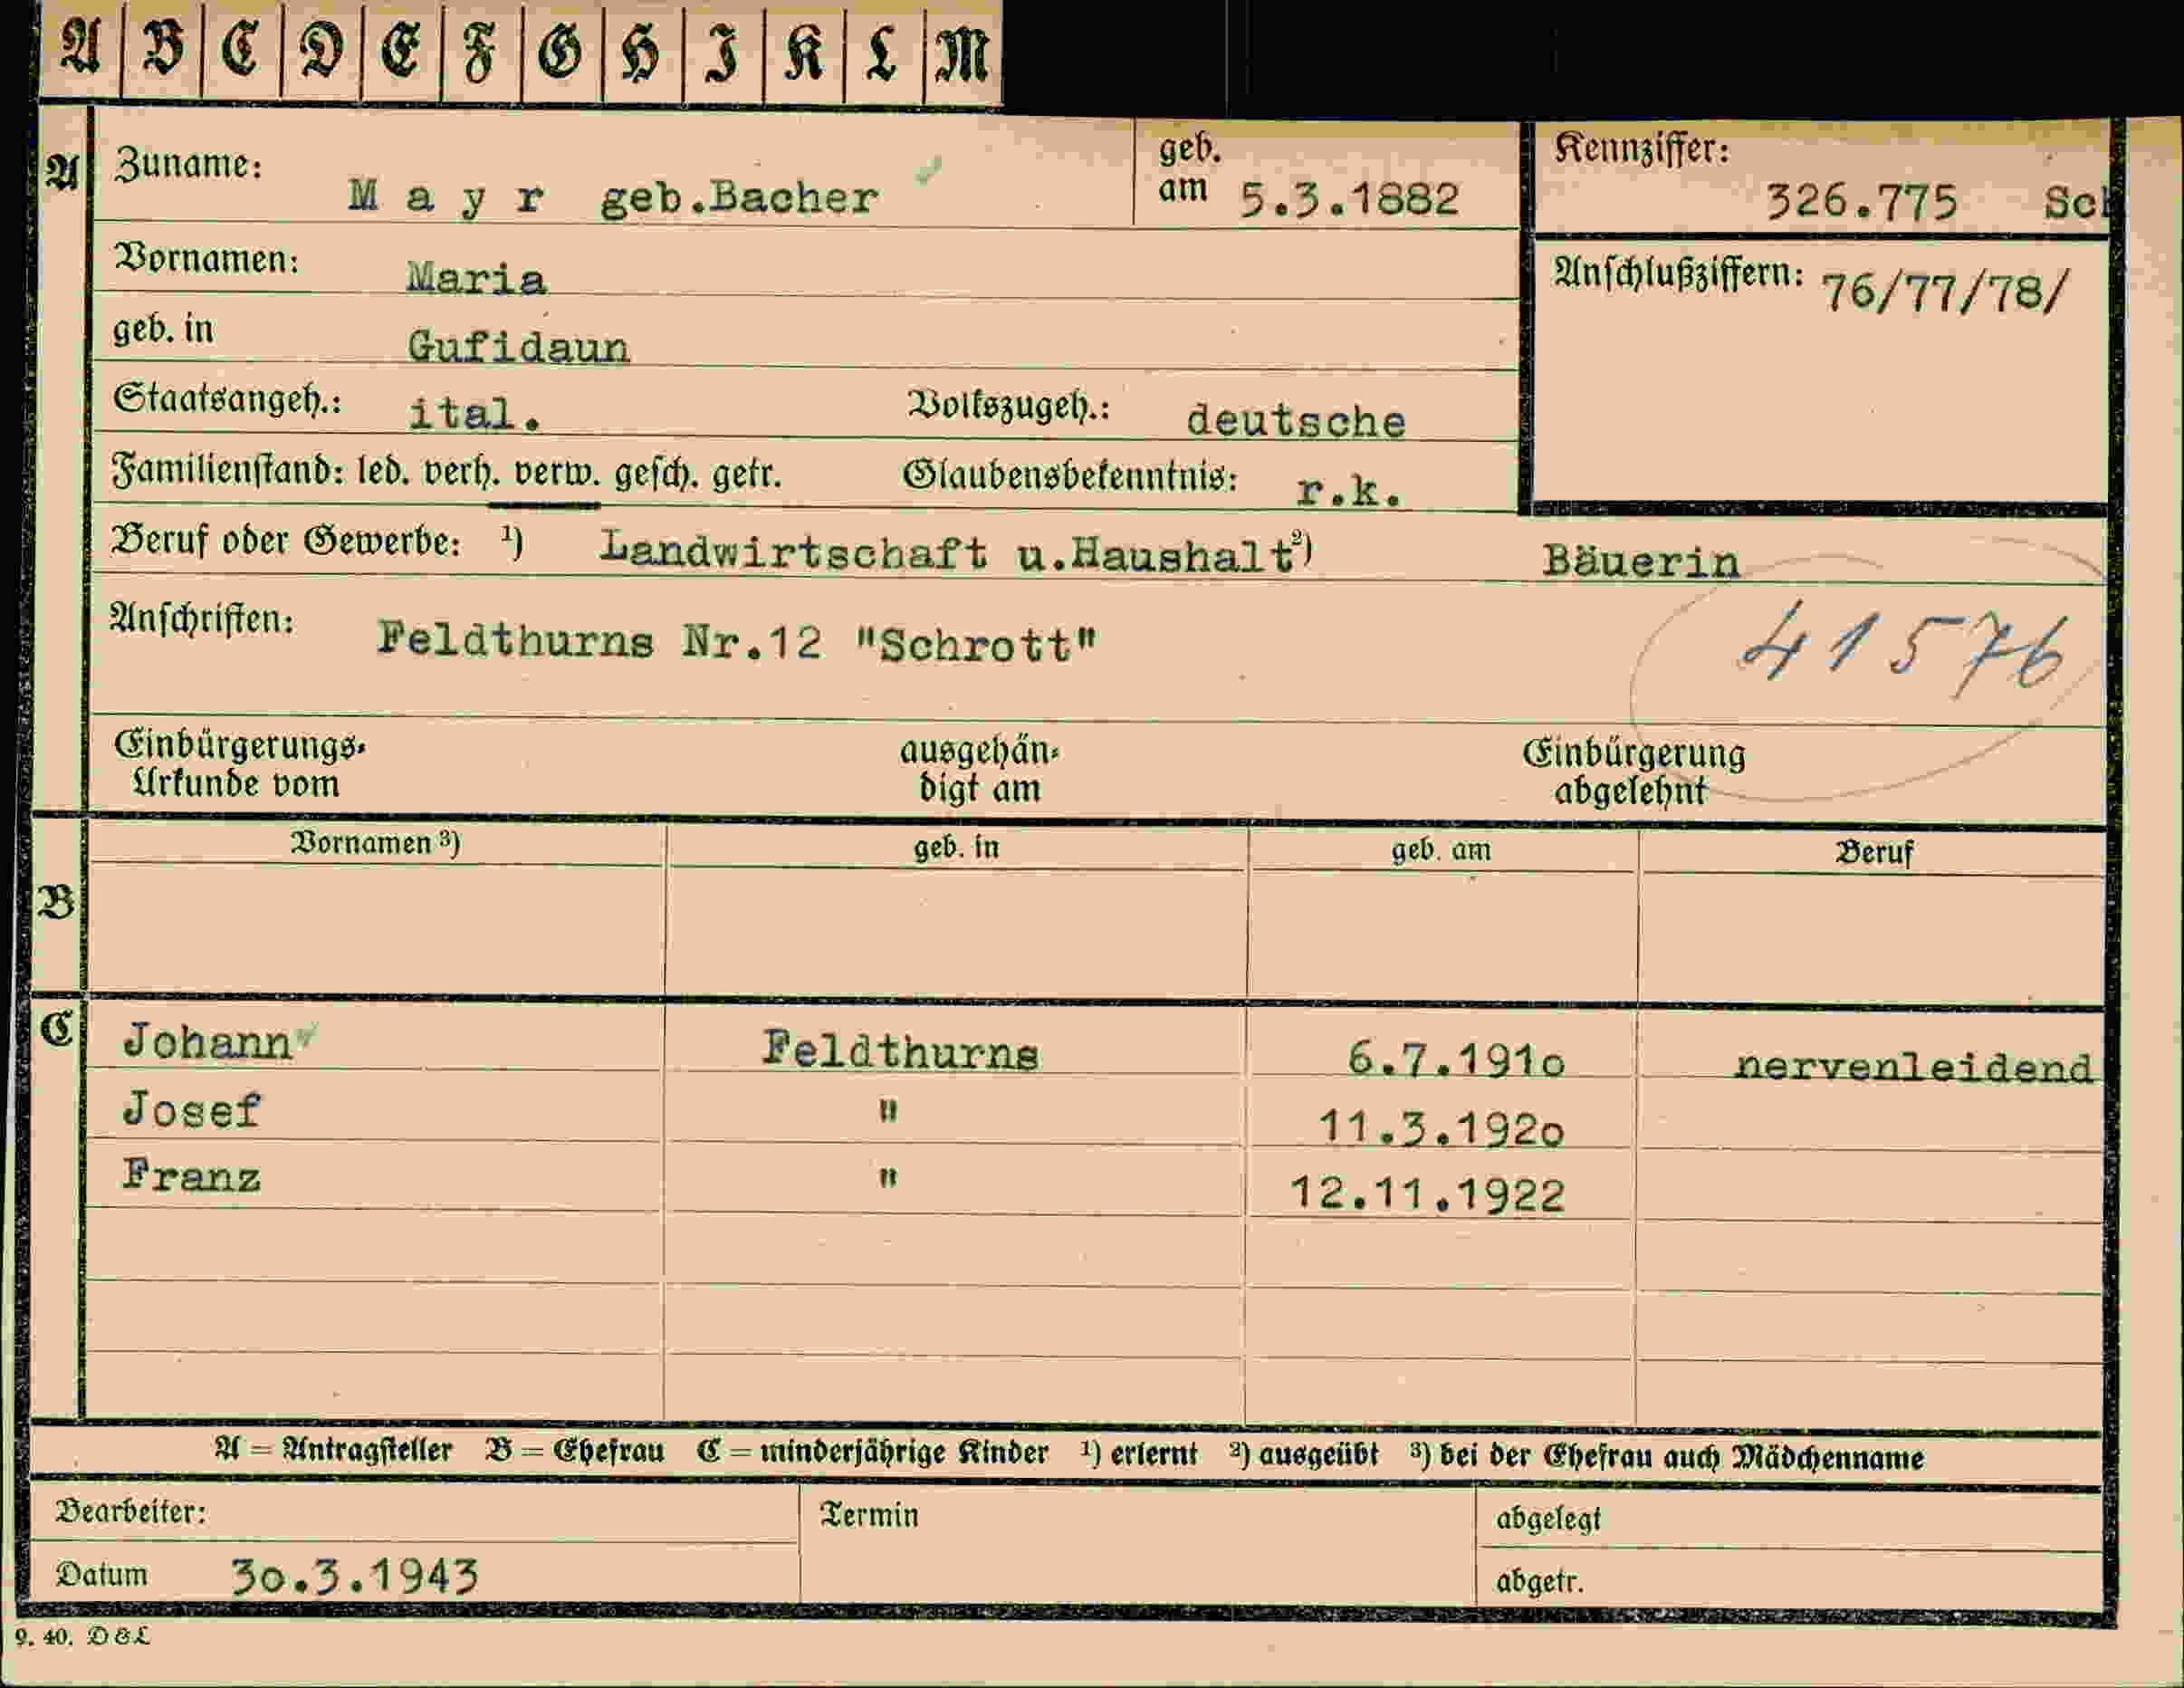 A B C D E F G H I K L M
A Zuname: M a y r geb.Bacher geb. am 5.3.1882 Kennziffer: 326.775
Vornamen: Maria Anschlußziffern: 76/77/78/
geb. in Gufidaun
Staatsangeh.: ital. Volkszugeh.: deutsche
Familienstand: led. verh. verw. gesch. getr. Glaubensbekenntnis: r.k.
Beruf oder Gewerbe: ¹) Landwirtschaft u.Haushalt ²) Bäuerin
Anschriften: Feldthurns Nr.12 "Schrott" 41576
Einbürgerungs- ausgehän- Einbürgerung
Urkunde vom digt am abgelehnt
Vornamen ³) geb. in geb. am Beruf
B
C Johann Feldthurns 6.7.191o nervenleidend
Josef " 11.3.192o
Franz " 12.11.1922
A = Antragsteller B = Ehefrau C = minderjährige Kinder ¹) erlernt ²) ausgeübt ³) bei der Ehefrau auch Mädchenname
Bearbeiter: Termin abgelegt
Datum 3o.3.1943 abgetr.
9. 40. D&L